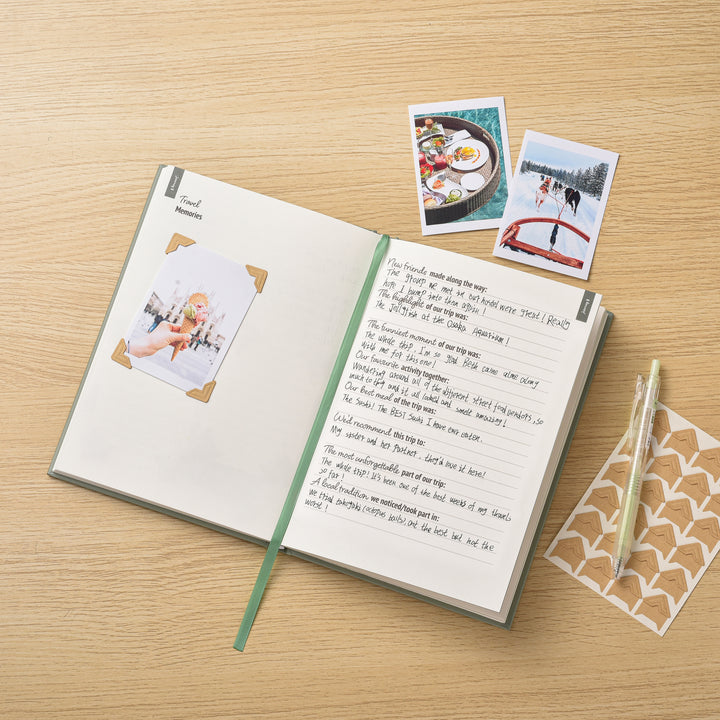 Travel
Memories
New friends made along the way:
The group we met in our hostel were great! Really
hope I bump into them again!
The highlight of our trip was:
The Jellyfish at the Osaka Aquarium!
The funniest moment of our trip was:
The whole trip. I'm so glad Beth came along
with me for this one!
Our favourite activity together:
Wandering around all of the different street food vendors, so
much to try and it all looked and smelt amazing!
Our best meal of the trip was:
The Sushi! The BEST Sushi I have ever eaten.
We'd recommend this trip to:
My sister and her partner.. they'd love it here!
The most unforgettable part of our trip:
The whole trip! It's been one of the best weeks of my travels
so far!
A local tradition we noticed/took part in:
We tried takoyaki (octopus balls) not the best but not the
worst!